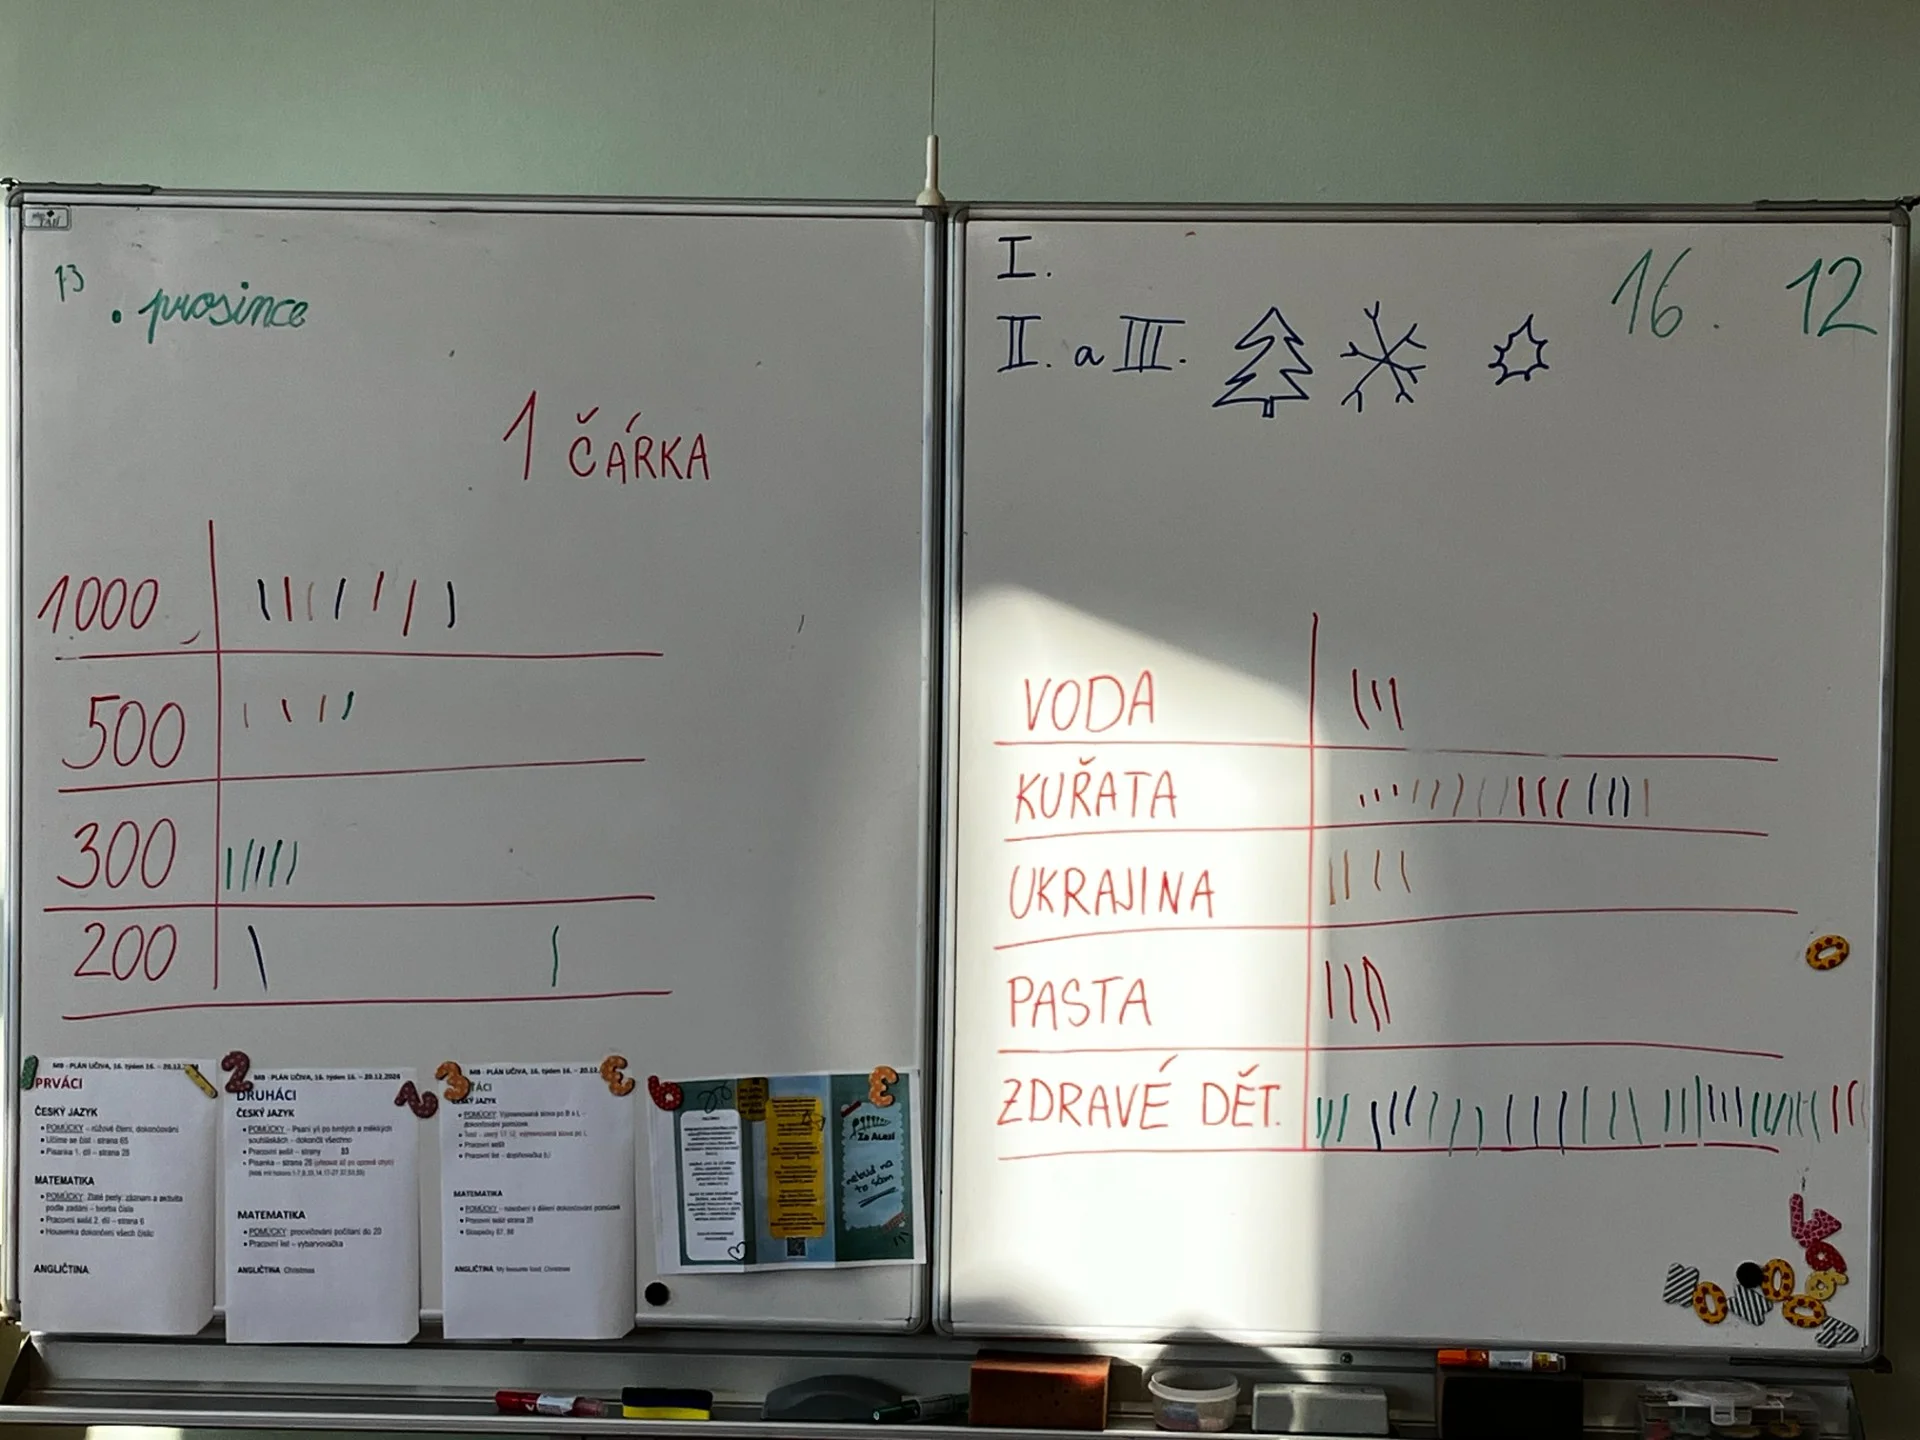 13
. prosince
1 ČÁRKA
1000
500
300
200
I.
II. a III.
16. 12
VODA
KUŘATA
UKRAJINA
PASTA
ZDRAVÉ DĚT.
MB - PLÁN UČIVA, 16. týden 16. – 20.12.
PRVÁCI
ČESKÝ JAZYK
• POMŮCKY – růžové čtení, dokončování
• Učíme se číst - strana 65
• Písanka 1. díl – strana 28
MATEMATIKA
• POMŮCKY: Zlaté perly: záznam a aktivita
podle zadání – tvorba čísla
• Pracovní sešit 2. díl – strana 6
• Housenka dokončení všech čísel
ANGLIČTINA
MB - PLÁN UČIVA, 16. týden 16. – 20.12.2024
DRUHÁCI
ČESKÝ JAZYK
• POMŮCKY: Psaní y/i po tvrdých a měkkých
souhláskách – dokončit všechno
• Pracovní sešit – strany 33
• Písanka – strana 28
MATEMATIKA
• POMŮCKY: procvičování počítání do 20
• Pracovní list – vybarvovačka
ANGLIČTINA Christmas
MB - PLÁN UČIVA, 16. týden 16. – 20.12.
ČESKÝ JAZYK
• POMŮCKY: Vyjmenovaná slova po B a L –
dokončování pomůcek
• Pracovní sešit
• Pracovní list – doplňovačka
MATEMATIKA
• POMŮCKY – násobení a dělení dokončování pomůcek
• Pracovní sešit strana 28
• Sloupečky 67, 68
ANGLIČTINA My favourite food, Christmas
nebuď na
to sám